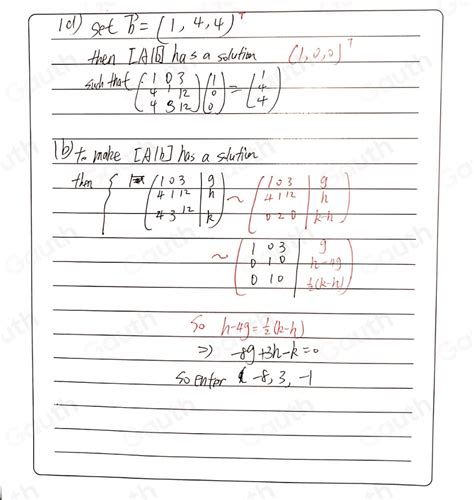 1a) set b⃗ = (1, 4, 4)ᵀ
then [A|b] has a solution (1, 0, 0)ᵀ
such that (1 0 3; 4 1 12; 4 3 12) (1; 0; 0) = (1; 4; 4)
1b) to make [A|b] has a solution
then { (1 0 3 | g; 4 1 12 | h; 4 3 12 | k) ~ (1 0 3 | g; 4 1 12 | h; 0 2 0 | k-h)
~ (1 0 3 | g; 0 1 0 | h-4g; 0 1 0 | ½(k-h))
So h-4g = ½(k-h)
⇒ -8g+3h-k=0
so enter -8, 3, -1
Gauth